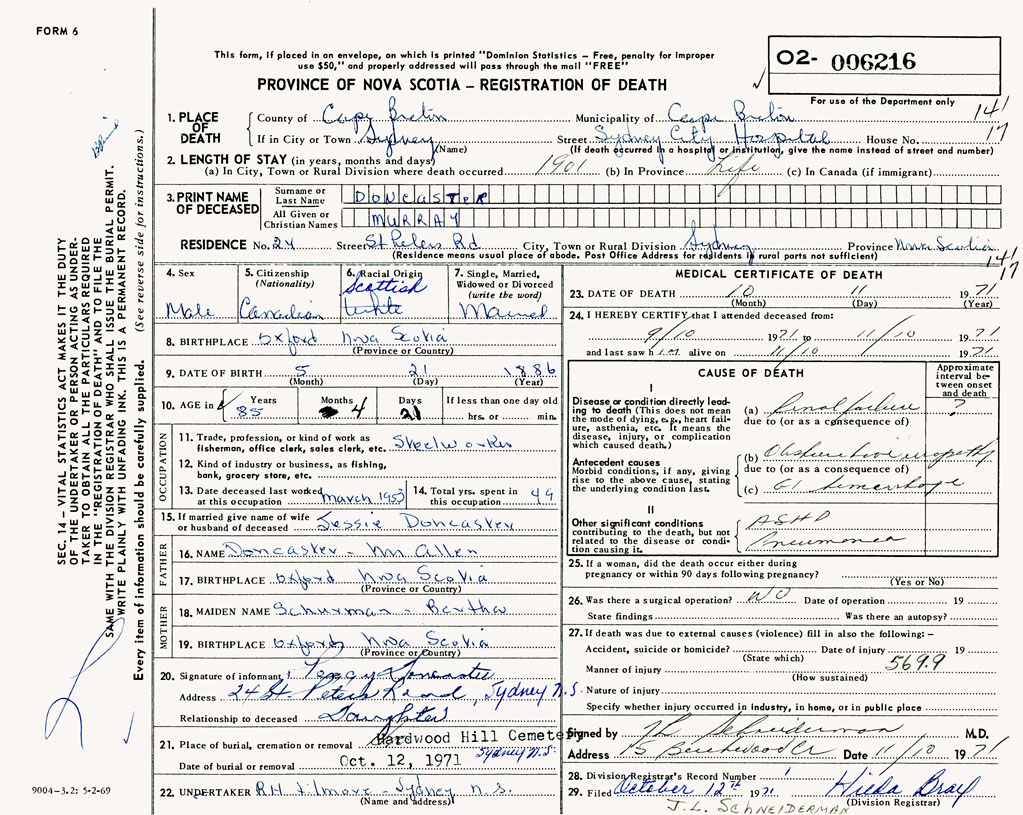 FORM 6
This form, if placed in an envelope, on which is printed "Dominion Statistics – Free, penalty for improper
use $50," and properly addressed will pass through the mail "FREE"
PROVINCE OF NOVA SCOTIA – REGISTRATION OF DEATH
O2- 006216
For use of the Department only
141
17
1. PLACE OF DEATH
County of Cape Breton Municipality of Cape Breton
If in City or Town Sydney Street Sydney City Hospital House No.
(Name) (If death occurred in a hospital or institution, give the name instead of street and number)
2. LENGTH OF STAY (in years, months and days)
(a) In City, Town or Rural Division where death occurred 1901 (b) In Province Life (c) In Canada (if immigrant)
3. PRINT NAME OF DECEASED
Surname or Last Name DONCASTER
All Given or Christian Names MURRAY
RESIDENCE No. 24 Street St Peters Rd City, Town or Rural Division Sydney Province Nova Scotia
(Residence means usual place of abode. Post Office Address for residents in rural parts not sufficient)
141
17
4. Sex Male
5. Citizenship (Nationality) Canadian
6. Racial Origin Scottish White
7. Single, Married, Widowed or Divorced (write the word) Married
8. BIRTHPLACE Oxford Nova Scotia
(Province or Country)
9. DATE OF BIRTH 5 21 1886
(Month) (Day) (Year)
10. AGE in Years 85 Months 4 Days 21 If less than one day old
hrs. or min.
OCCUPATION
11. Trade, profession, or kind of work as
fisherman, office clerk, sales clerk, etc. Steelworker
12. Kind of industry or business, as fishing,
bank, grocery store, etc.
13. Date deceased last worked at this occupation March 1953
14. Total yrs. spent in this occupation 49
15. If married give name of wife
or husband of deceased Jessie Doncaster
FATHER
16. NAME Doncaster - Wm Allen
17. BIRTHPLACE Oxford Nova Scotia
(Province or Country)
MOTHER
18. MAIDEN NAME Schurman - Bertha
19. BIRTHPLACE Oxford Nova Scotia
(Province or Country)
20. Signature of informant Peggy Doncaster
Address 24 St. Peters Road, Sydney N.S.
Relationship to deceased Daughter
21. Place of burial, cremation or removal Hardwood Hill Cemetery
Sydney N.S.
Date of burial or removal Oct. 12, 1971
22. UNDERTAKER Sydney N.S.
(Name and address)
MEDICAL CERTIFICATE OF DEATH
23. DATE OF DEATH 10 11 1971
(Month) (Day) (Year)
24. I HEREBY CERTIFY that I attended deceased from:
9/10 1971 to 11/10 1971
and last saw him alive on 11/10 1971
CAUSE OF DEATH
Approximate interval between onset and death
I
Disease or condition directly leading to death (This does not mean
the mode of dying, e.g., heart failure, asthenia, etc. It means the
disease, injury, or complication
which caused death.)
(a) Renal failure ?
due to (or as a consequence of)
Antecedent causes
Morbid conditions, if any, giving
rise to the above cause, stating
the underlying condition last.
(b) Obstructive uropathy
due to (or as a consequence of)
(c) GI hemorrhage
II
Other significant conditions
contributing to the death, but not
related to the disease or condition causing it.
ASHD
Pneumonia
25. If a woman, did the death occur either during
pregnancy or within 90 days following pregnancy?
(Yes or No)
26. Was there a surgical operation? NO Date of operation 19
State findings Was there an autopsy?
27. If death was due to external causes (violence) fill in also the following: –
Accident, suicide or homicide? Date of injury 19
(State which) 569.9
Manner of injury
(How sustained)
Nature of injury
Specify whether injury occurred in industry, in home, or in public place
Signed by JL Schneiderman M.D.
Address 15 Beechwood Cr Date 11/10 1971
28. Division Registrar's Record Number
29. Filed October 12th 1971 Hilda Bray
(Division Registrar)
J.L. SCHNEIDERMAN
SEC. 14 – VITAL STATISTICS ACT MAKES IT THE DUTY
OF THE UNDERTAKER OR PERSON ACTING AS UNDERTAKER TO OBTAIN ALL THE PARTICULARS REQUIRED
IN THE "REGISTRATION OF DEATH" AND TO FILE THE
SAME WITH THE DIVISION REGISTRAR WHO SHALL ISSUE THE BURIAL PERMIT.
WRITE PLAINLY WITH UNFADING INK. THIS IS A PERMANENT RECORD.
Every item of information should be carefully supplied. (See reverse side for instructions.)
9004-3.2: 5-2-69